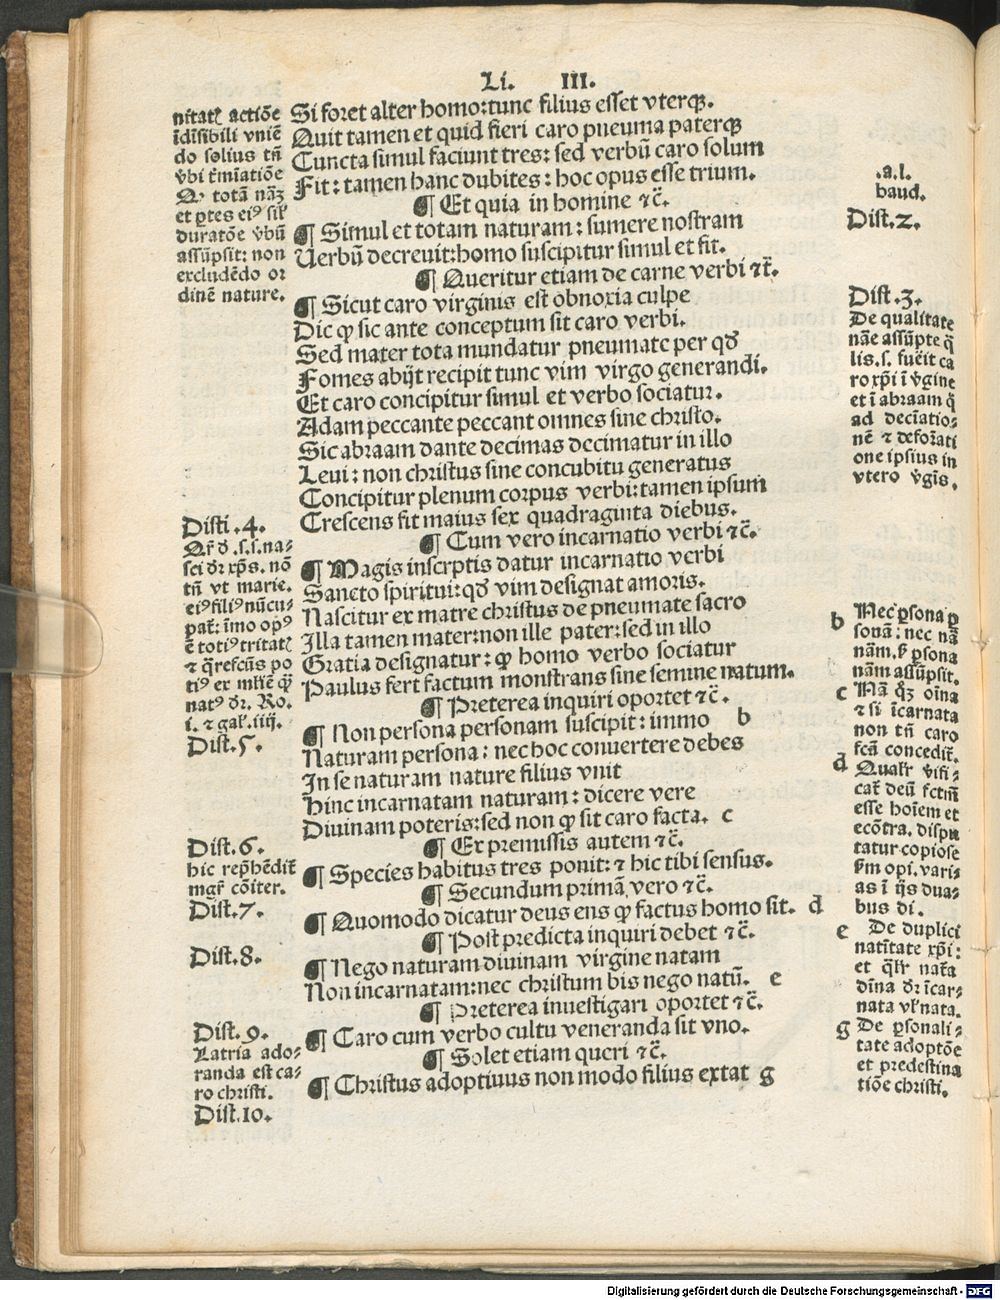 Li. III.
nitatꝭ actiõe
ĩdiſibili vniẽ
do ſolius tñ
v̄bi t̃mĩatiõe
totã nãꝫ
et ꝑtes eiꝰ ſiĺ
duratõe v̄bũ
aſſũpſit: non
excludẽdo or
dinẽ nature.
Si foret alter homo: tunc filius eſſet vterqꝫ.
Quit tamen et quid fieri caro pneuma paterqꝫ
Cuncta ſimul faciunt tres: ſed verbũ caro ſolum
Fit: tamen hanc dubites: hoc opus eſſe trium.
¶ Et quia in homine ⁊c̃.
¶ Simul et totam naturam: ſumere noſtram
Uerbũ decreuit: homo ſuſcipitur ſimul et fit.
¶ Queritur etiam de carne verbi ⁊t̃.
¶ Sicut caro virginis eſt obnoxia culpe
Dic ꝙ ſic ante conceptum ſit caro verbi.
Sed mater tota mundatur pneumate per qđ
Fomes abijt recipit tunc vim virgo generandi.
Et caro concipitur ſimul et verbo ſociatur.
Adam peccante peccant omnes ſine chriſto.
Sic abraam dante decimas decimatur in illo
Leui: non chriſtus ſine concubitu generatus
Concipitur plenum corpus verbi: tamen ipſum
Creſcens fit maius ſex quadraginta diebus.
¶ Cum vero incarnatio verbi ⁊c̃.
¶ Magis inſcrptis datur incarnatio verbi
Sancto ſpiritui: qđ vim deſignat amoris.
Naſcitur ex matre chriſtus de pneumate ſacro
Illa tamen mater: non ille pater: ſed in illo
Gratia deſignatur: ꝙ homo verbo ſociatur
Paulus fert factum monſtrans ſine ſemine natum.
¶ Preterea inquiri oportet ⁊c̃.
¶ Non perſona perſonam ſuſcipit: immo b
Naturam perſona: nec hoc conuertere debes
In ſe naturam nature filius vnit
Hinc incarnatam naturam: dicere vere
Diuinam poteris: ſed non ꝙ ſit caro facta. c
¶ Ex premiſſis autem ⁊c̃.
¶ Species habitus tres ponit: ⁊ hic tibi ſenſus.
¶ Secundum primã vero ⁊c̃.
¶ Quomodo dicatur deus ens ꝙ factus homo ſit. d
¶ Poſt predicta inquiri debet ⁊c̃.
¶ Nego naturam diuinam virgine natam
Non incarnatam: nec chriſtum bis nego natũ. e
¶ Preterea inueſtigari oportet ⁊c̃.
¶ Caro cum verbo cultu veneranda ſit vno.
¶ Solet etiam queri ⁊c̃.
¶ Chriſtus adoptiuus non modo filius extat g
Diſti .4.
.ſ.ſ. na-
ſci dr̃ xp̃s. nõ
tñ vt marie.
eiꝰ filiꝰ nũcu-
pat̃: ĩmo opꝰ
ẽ totiꝰ tritatꝭ
⁊ q̃reſcũs po
tiꝰ ex
natꝰ dr̃. Ro.
i. ⁊ gaĺ. iiij.
Diſt.5.
Diſt.6.
hic rep̃hẽdit̃
mḡr cõiter.
Diſt.7.
Diſt.8.
Diſt.9.
Latria ado-
randa eſt ca-
ro chriſti.
Diſt.10.
.a.l.
baud.
Diſt.2.
Diſt.3.
De qualitate
nãe aſſũpte q̃
lis.ſ. fuẽit ca
ro xp̃i ĩ v̄gine
et ĩ abraam q̃
ad decĩatio-
nẽ ⁊ deforati
one ipſius in
vtero v̄gĩs.
b Nec ꝑſona ꝑ
ſonã: nec nã
nãm. ꝑſona
nãm aſſũpſit.
c Nã oĩna
⁊ ſi ĩcarnata
non tñ caro
fc̃ã concedit̃.
d Qualr̃ v̄ifi-
cat̃ deũ
eſſe hoĩem et
ecõtra. diſpu
tatur copioſe
opi. vari-
as ĩ ijs dua-
bus di.
e De duplici
natĩtate xp̃i:
et q̃lr̃ nat̃a
dĩna dr̃ ĩcar-
nata vĺ nata.
g De ꝑſonali-
tate adoptõe
et predeſtina
tiõe chriſti.
Digitalisierung gefördert durch die Deutsche Forschungsgemeinschaft - DFG